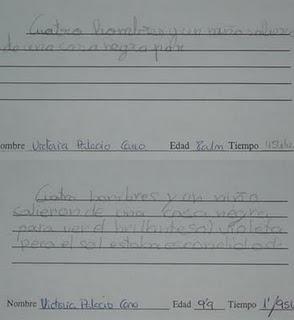 Cuatro hombres y un niño saliero
de una casa negra par
ombre Victoria Palacio Cano Edad Tiempo
Cuatro hombres y un niño
salieron de una casa negra
para ver el brillante sol violeta
pero el sol estaba escondido
Nombre Victoria Palacio Cano Edad 9'9 Tiempo 1'